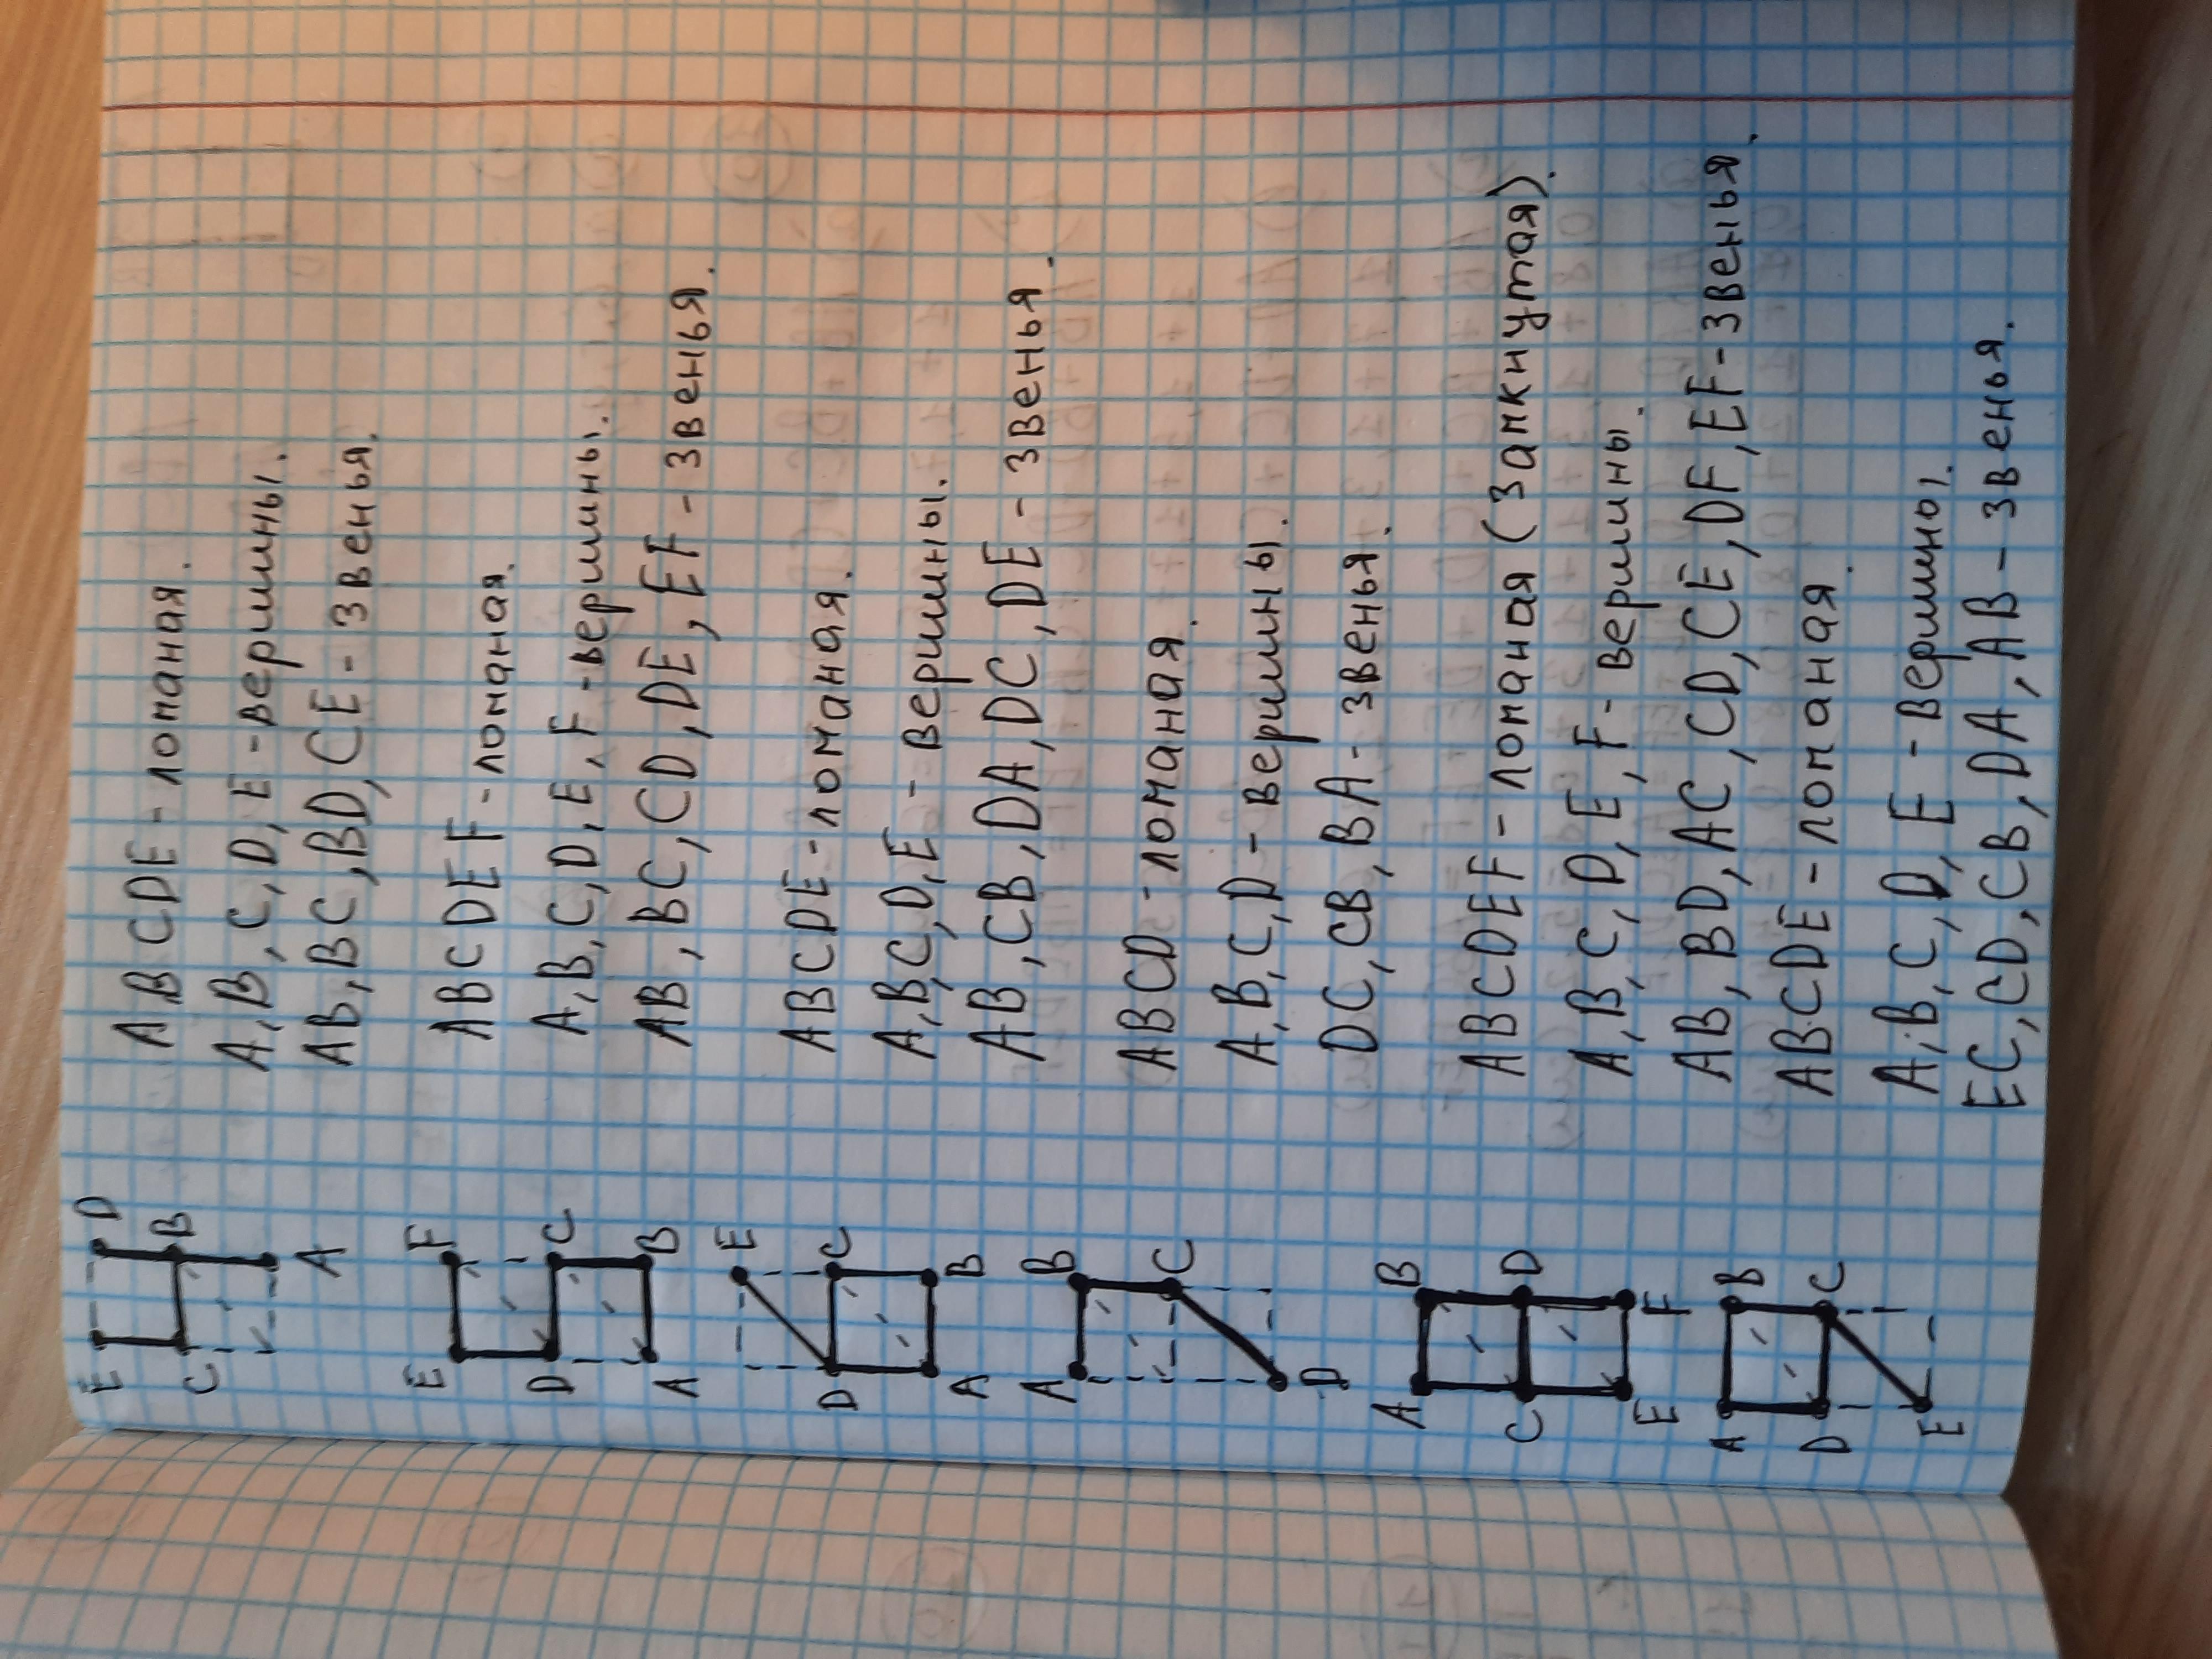 E D
C B
A
ABCDE - ломаная.
A, B, C, D, E - вершины.
AB, BC, BD, CE - звенья.
E F
D C
A B
ABCDEF - ломаная.
A, B, C, D, E, F - вершины.
AB, BC, CD, DE, EF - звенья.
E
D C
A B
ABCDE - ломаная.
A, B, C, D, E - вершины.
AB, CB, DA, DC, DE - звенья.
A B
C
D
ABCD - ломаная.
A, B, C, D - вершины.
DC, CB, BA - звенья.
A B
C D
E F
ABCDEF - ломаная (замкнутая).
A, B, C, D, E, F - вершины.
AB, BD, AC, CD, CE, DF, EF - звенья.
A B
D C
E
ABCDE - ломаная.
A, B, C, D, E - вершины.
EC, CD, CB, DA, AB - звенья.